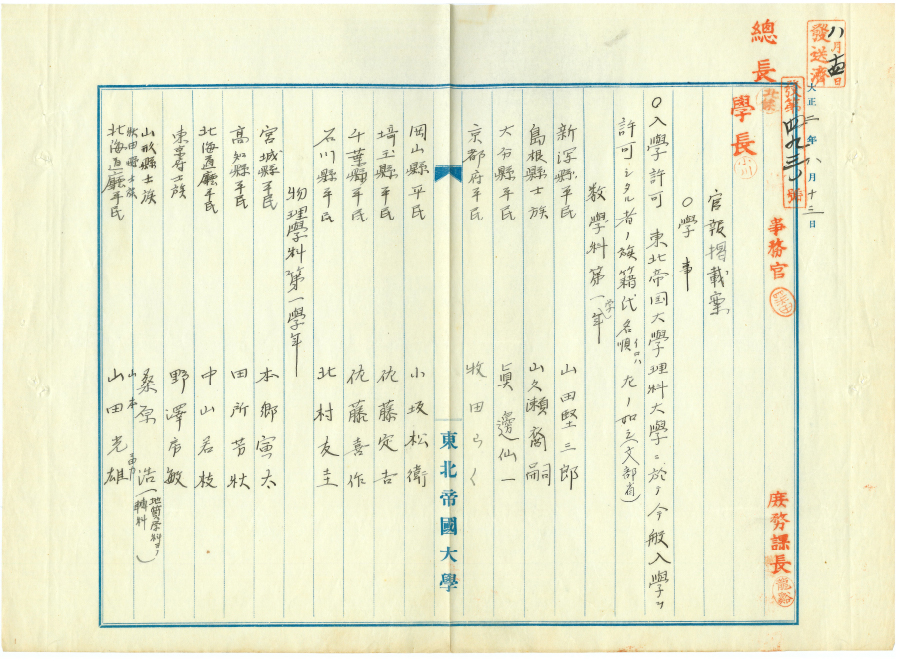 發送濟
八月十四日
大正二年八月十三日
發第四九三号
總長
學長
小川
事務官
庶務課長
龍谿
官報掲載案
〇學事
〇入學許可 東北帝国大學理科大學ニ於テ今般入學ヲ
許可シタル者ノ族籍氏名(イロハ順)左ノ如シ(文部省)
数學科第一學年
新潟縣平民 山田堅三郎
島根縣士族 山久瀬裔嗣
大分縣平民 眞邊仙一
京都府平民 牧田らく
岡山縣平民 小坂松衛
埼玉縣平民 佐藤定吉
千葉縣平民 佐藤喜作
石川縣平民 北村友圭
物理學科第一學年
宮城縣平民 本郷寅太
高知縣平民 田所芳秋
北海道廳平民 中山若枝
東京府士族 野澤房敏
山形縣士族 桑原浩(地質學科ヨリ轉科)
秋田縣士族 山本
北海道廳平民 山田光雄
東北帝國大學